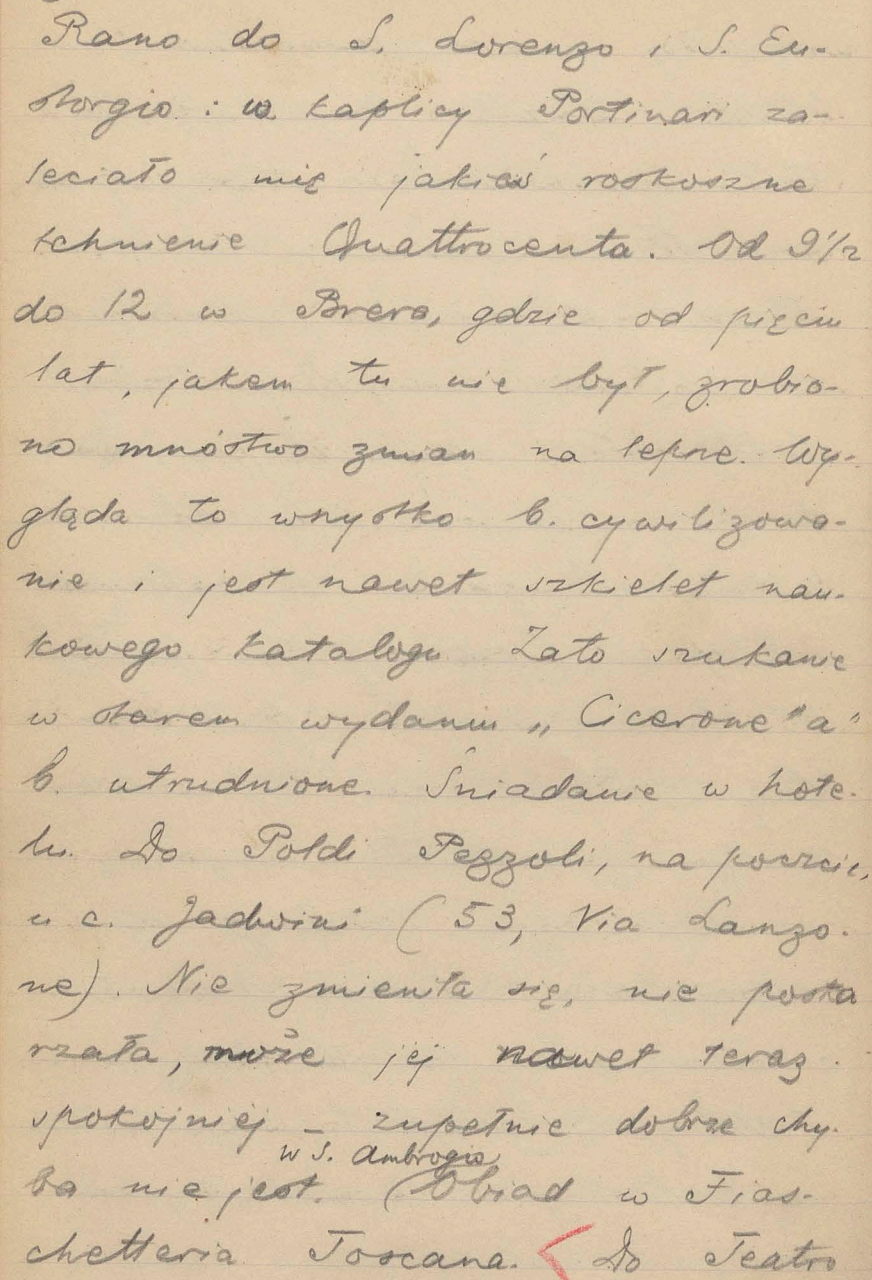 Rano do S. Lorenzo i S. Eu-
storgio: w kaplicy Portinari za-
leciało mię jakieś roskoszne
tchnienie Quattrocenta. Od 9 1/2
do 12 w Brera, gdzie od pięciu
lat, jakem tu nie był, zrobio-
no mnóstwo zmian na lepsze. Wy-
gląda to wszystko b. cywilizowa-
nie i jest nawet szkielet nau-
kowego katalogu. Zato szukanie
w starem wydaniu „Cicerone"a"
b. utrudnione. Śniadanie w hote-
lu. Do Poldi Pezzoli, na poczcie,
u c. Jadwini (53, Via Lanzo-
ne). Nie zmieniła się, nie posta
rzała, może jej nawet teraz
spokojniej – zupełnie dobrze chy-
w S. Ambrogio
ba nie jest. (Obiad w Fias-
chetteria Toscana. Do Teatro